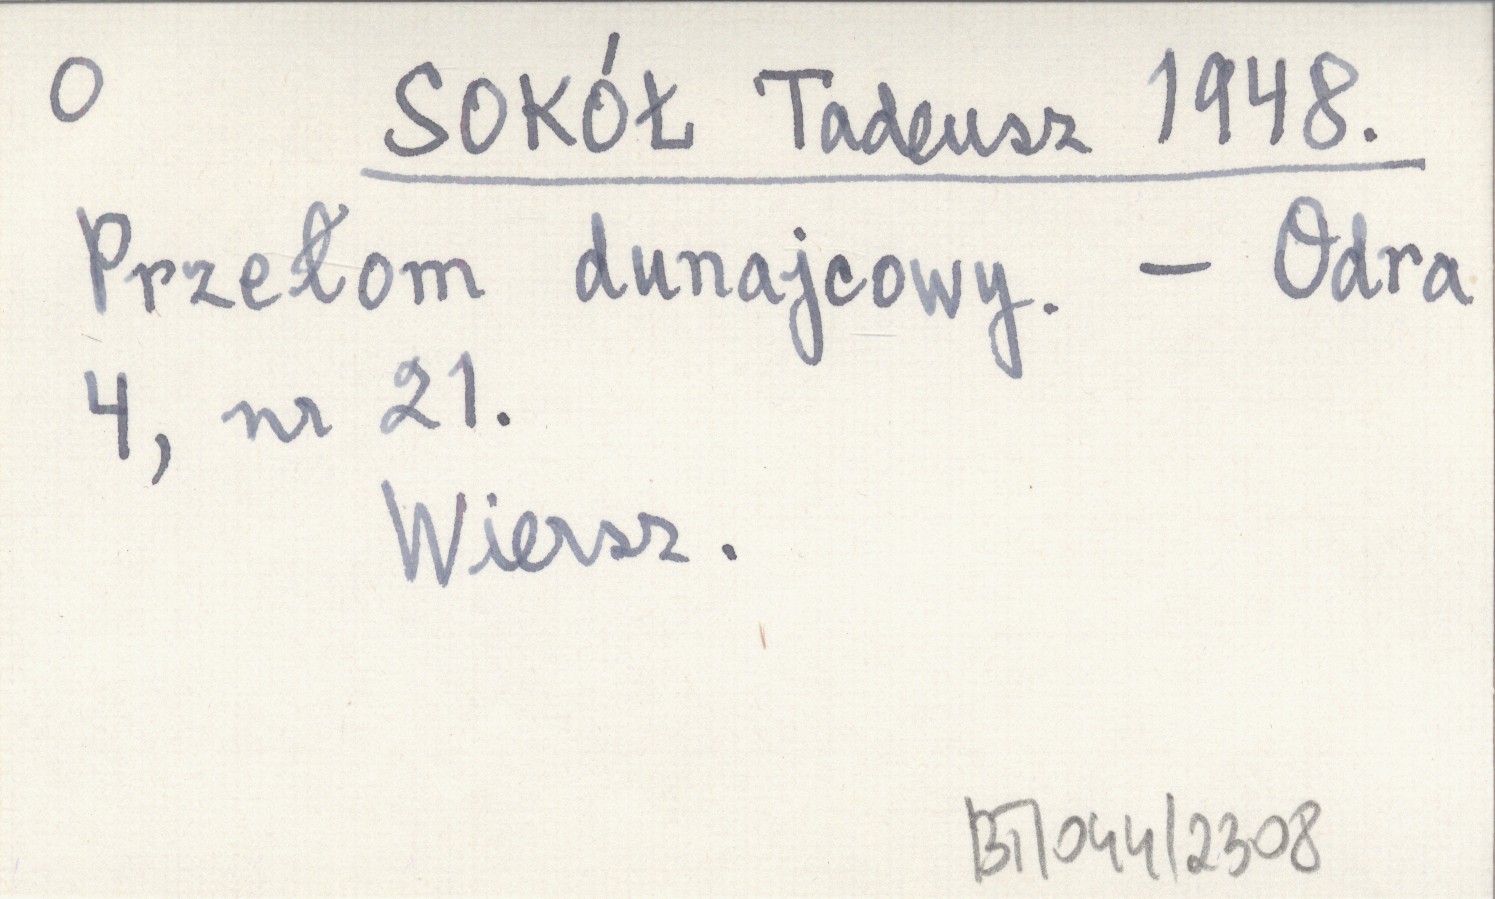 O SOKÓŁ Tadeusz 1948.
Przełom dunajcowy. – Odra
4, nr 21.
Wiersz.
BT/044/2308